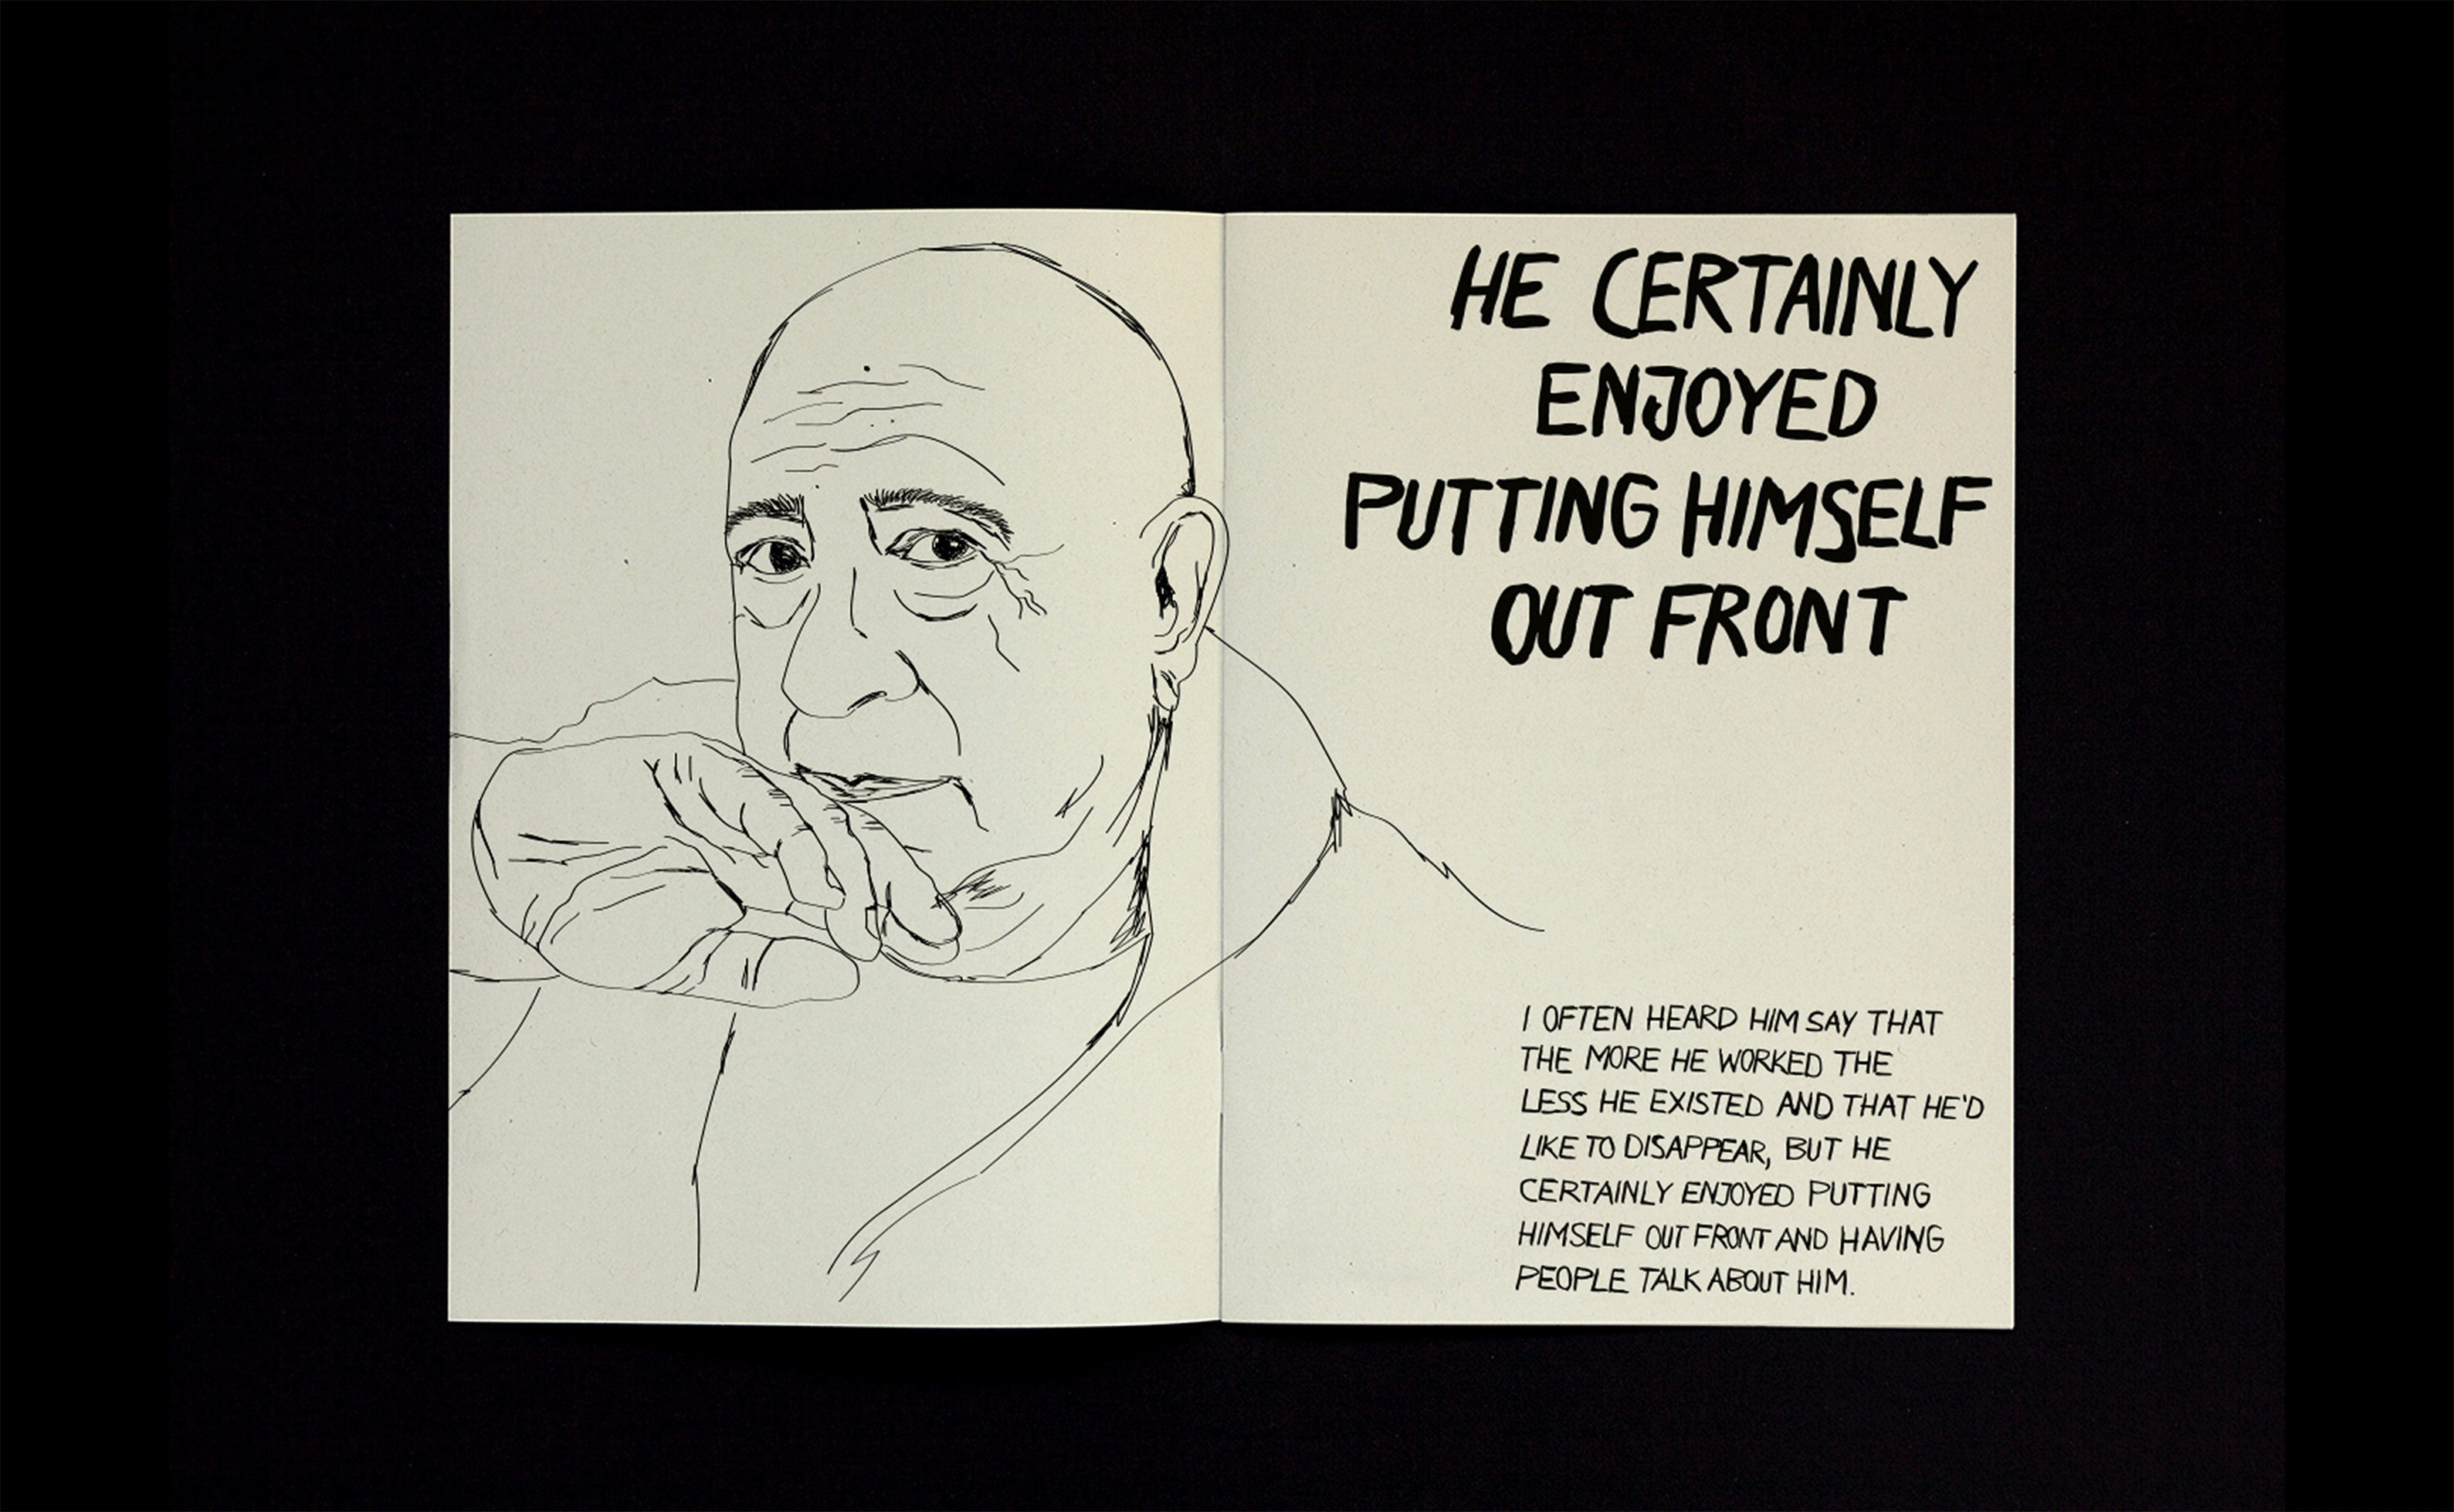 HE CERTAINLY
ENJOYED
PUTTING HIMSELF
OUT FRONT
I OFTEN HEARD HIM SAY THAT
THE MORE HE WORKED THE
LESS HE EXISTED AND THAT HE'D
LIKE TO DISAPPEAR, BUT HE
CERTAINLY ENJOYED PUTTING
HIMSELF OUT FRONT AND HAVING
PEOPLE TALK ABOUT HIM.